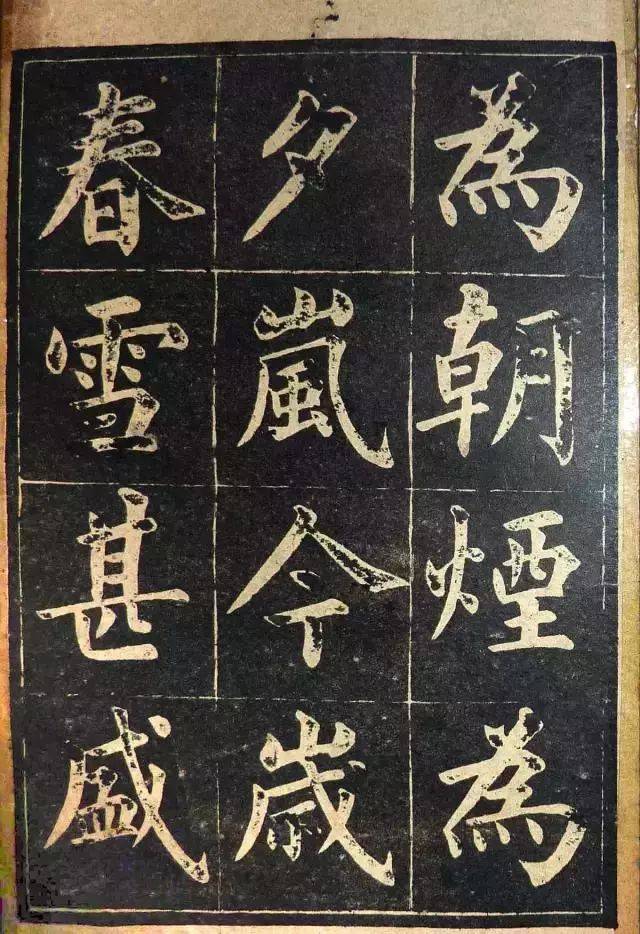 為朝煙為
夕嵐今歲
春雪甚盛